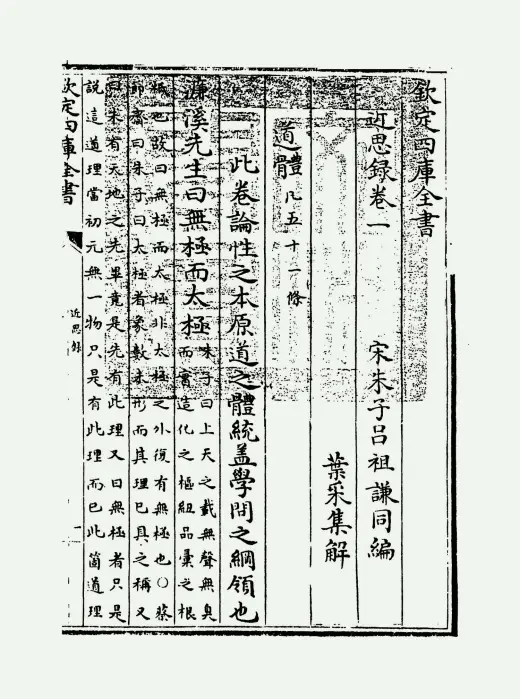 欽定四庫全書
近思録卷一
宋朱子吕祖謙同編
葉采集解
道體凡五十一條
此卷論性之本原道之體統蓋學問之綱領也
濂溪先生曰無極而太極
朱子曰上天之載無聲無臭
而實造化之樞紐品彙之根
柢也故曰無極而太極非太極之外復有無極也○蔡
節齋曰朱子曰太極者象數未形而其理已具之稱又
曰未有天地之先畢竟是先有此理又曰無極者只是
說這道理當初元無一物只是有此理而已此箇道理
欽定四庫全書
近思録
一